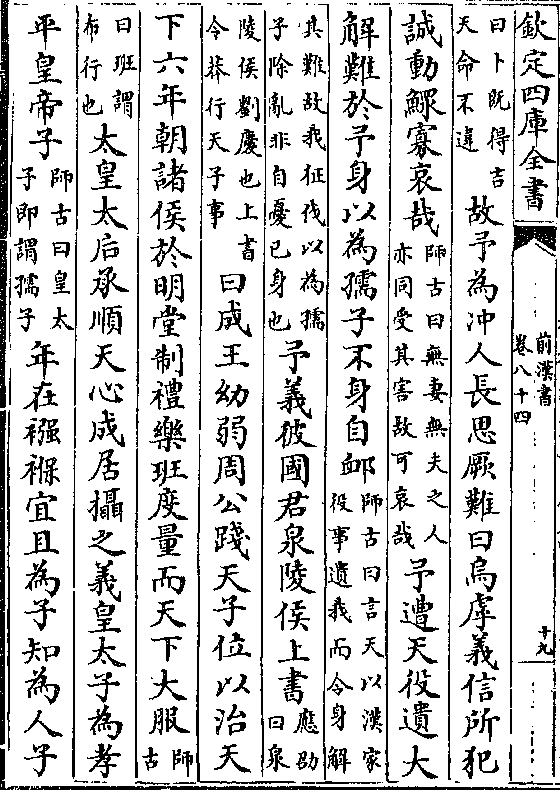 欽定四庫全書
前漢書
卷八十四
十九
曰卜既得吉
天命不違
故予為沖人長思厥難曰烏虖義信所犯
誠動鰥寡哀哉
師古曰無妻無夫之人
亦同受其害故可哀哉
予遭天役遺大
解難於予身以為孺子不身自卹
師古曰言天以漢家
役事遺我而令身解
其難故我征伐以為孺
子除亂非自憂已身也
予義彼國君泉陵侯上書
應劭
曰泉
陵侯劉慶也上書
令莽行天子事
曰成王幼弱周公踐天子位以治天
下六年朝諸侯於明堂制禮樂班度量而天下大服
師
古
曰班謂
布行也
太皇太后承順天心成居攝之義皇太子為孝
平皇帝子
師古曰皇太
子即謂孺子
年在襁褓宜且為子知為人子